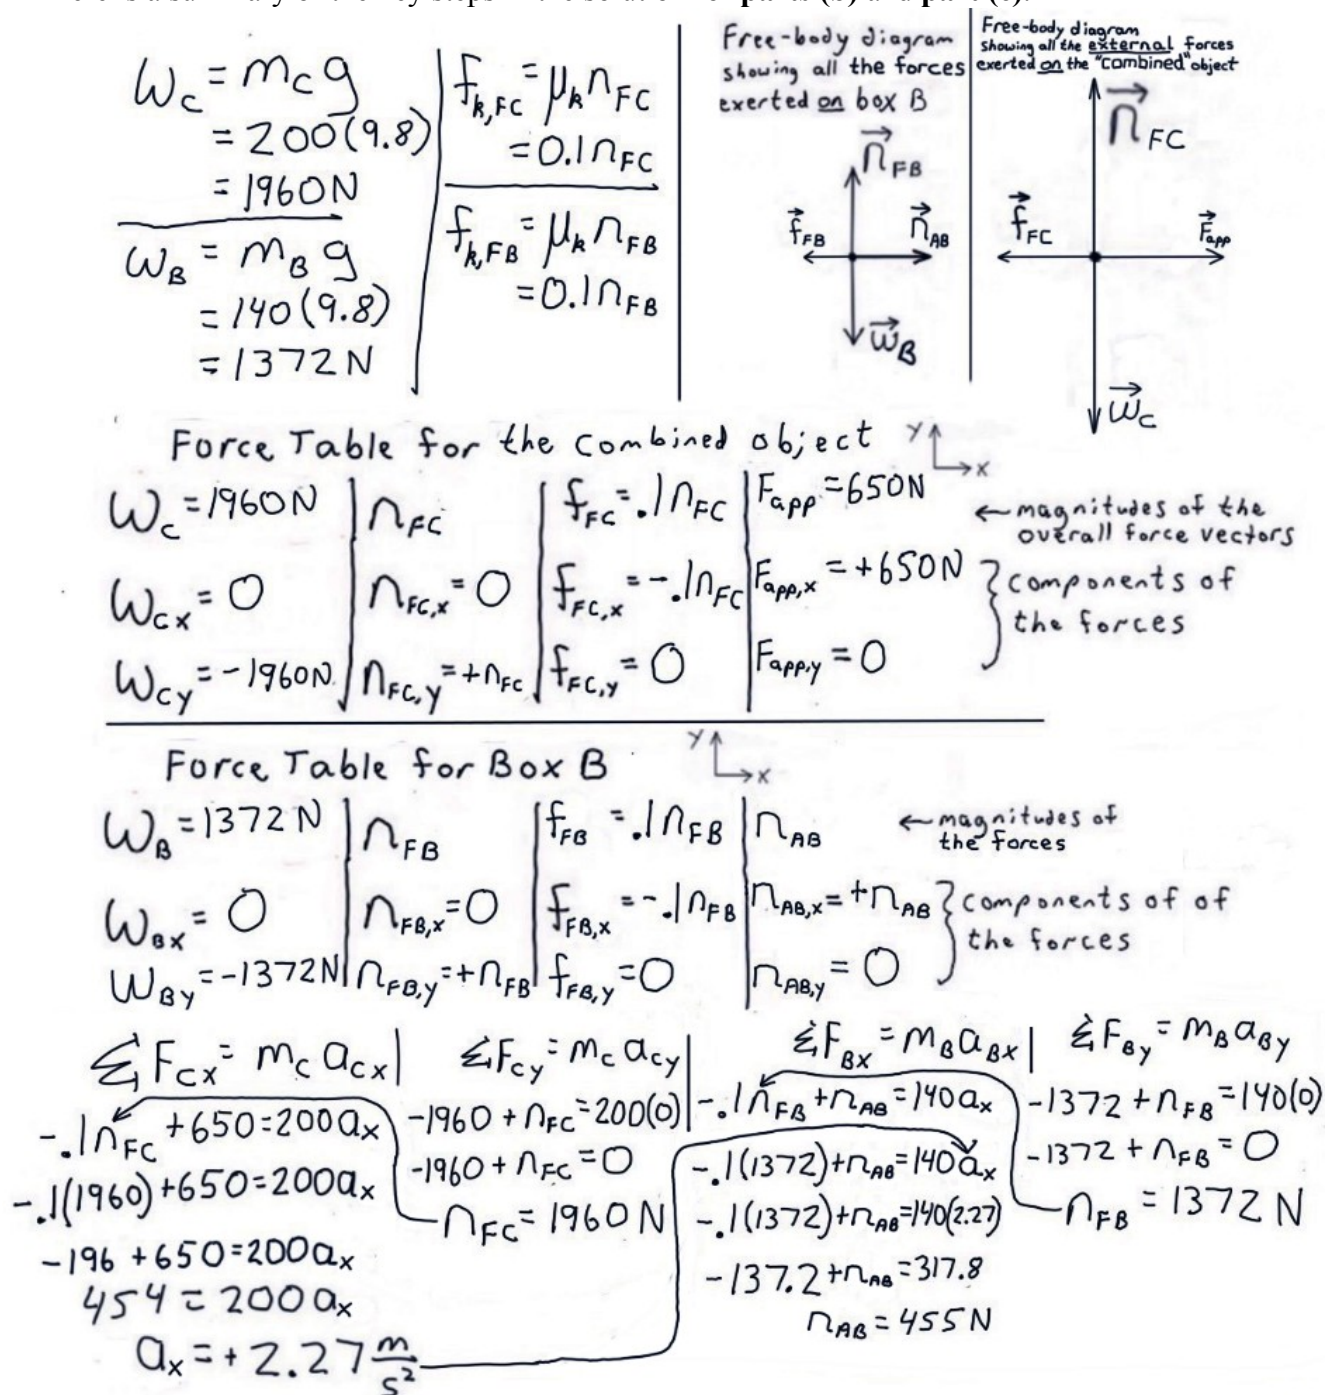 ere is a summary of the key steps in the solution for parts (b) and part (c).
w_C = m_C g
= 200(9.8)
= 1960N
w_B = m_B g
= 140(9.8)
= 1372N
f_k,FC = μ_k n_FC
= 0.1n_FC
f_k,FB = μ_k n_FB
= 0.1n_FB
Free-body diagram
showing all the forces
exerted on box B
n_FB
f_FB
n_AB
w_B
Free-body diagram
showing all the external forces
exerted on the "combined" object
n_FC
f_FC
F_app
w_C
Force Table for the combined object
Y
x
w_C = 1960N | n_FC | f_FC = .1n_FC | F_app = 650N
← magnitudes of the
overall force vectors
w_CX = 0 | n_FC,x = 0 | f_FC,x = -.1n_FC | F_app,x = +650N
components of
the forces
w_CY = -1960N | n_FC,Y = +n_FC | f_FC,Y = 0 | F_app,Y = 0
Force Table for Box B
Y
x
w_B = 1372N | n_FB | f_FB = .1n_FB | n_AB
← magnitudes of
the forces
w_BX = 0 | n_FB,X = 0 | f_FB,X = -.1n_FB | n_AB,X = +n_AB
components of of
the forces
w_BY = -1372N | n_FB,Y = +n_FB | f_FB,Y = 0 | n_AB,Y = 0
ΣF_CX = m_C a_CX
-.1n_FC + 650 = 200a_x
-.1(1960) + 650 = 200a_x
-196 + 650 = 200a_x
454 = 200a_x
a_x = +2.27 m/s²
ΣF_CY = m_C a_CY
-1960 + n_FC = 200(0)
-1960 + n_FC = 0
n_FC = 1960N
ΣF_BX = m_B a_BX
-.1n_FB + n_AB = 140a_x
-.1(1372) + n_AB = 140a_x
-.1(1372) + n_AB = 140(2.27)
-137.2 + n_AB = 317.8
n_AB = 455N
ΣF_BY = m_B a_BY
-1372 + n_FB = 140(0)
-1372 + n_FB = 0
n_FB = 1372 N